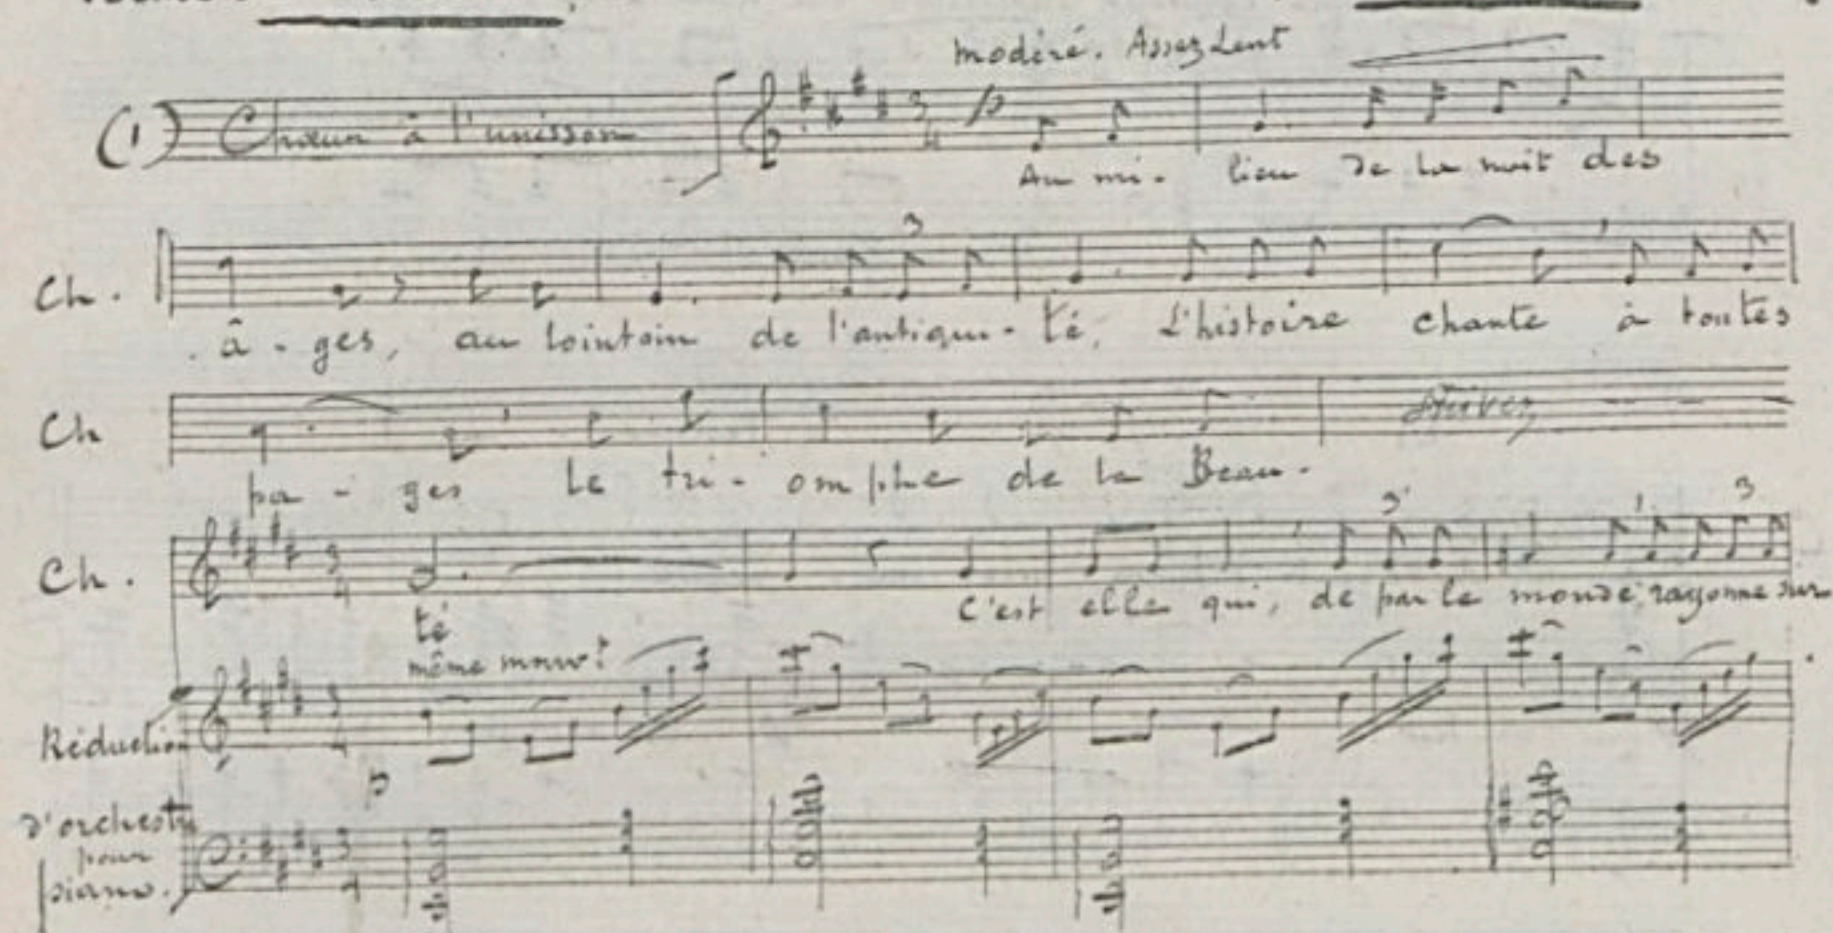 Modéré. Assez Lent
(1) Chœur à l'unisson
p
Au mi- lieu de la nuit des
3
Ch.
â - ges, au lointain de l'antiqui- té, L'histoire chante à toutes
Ch
Suivez
pa - ges le tri - omphe de la Beau-
3 3
Ch.
té C'est elle qui, de par le monde, rayonne sur
même mouvt
Réduction
p
d'orchestre
pour
piano.